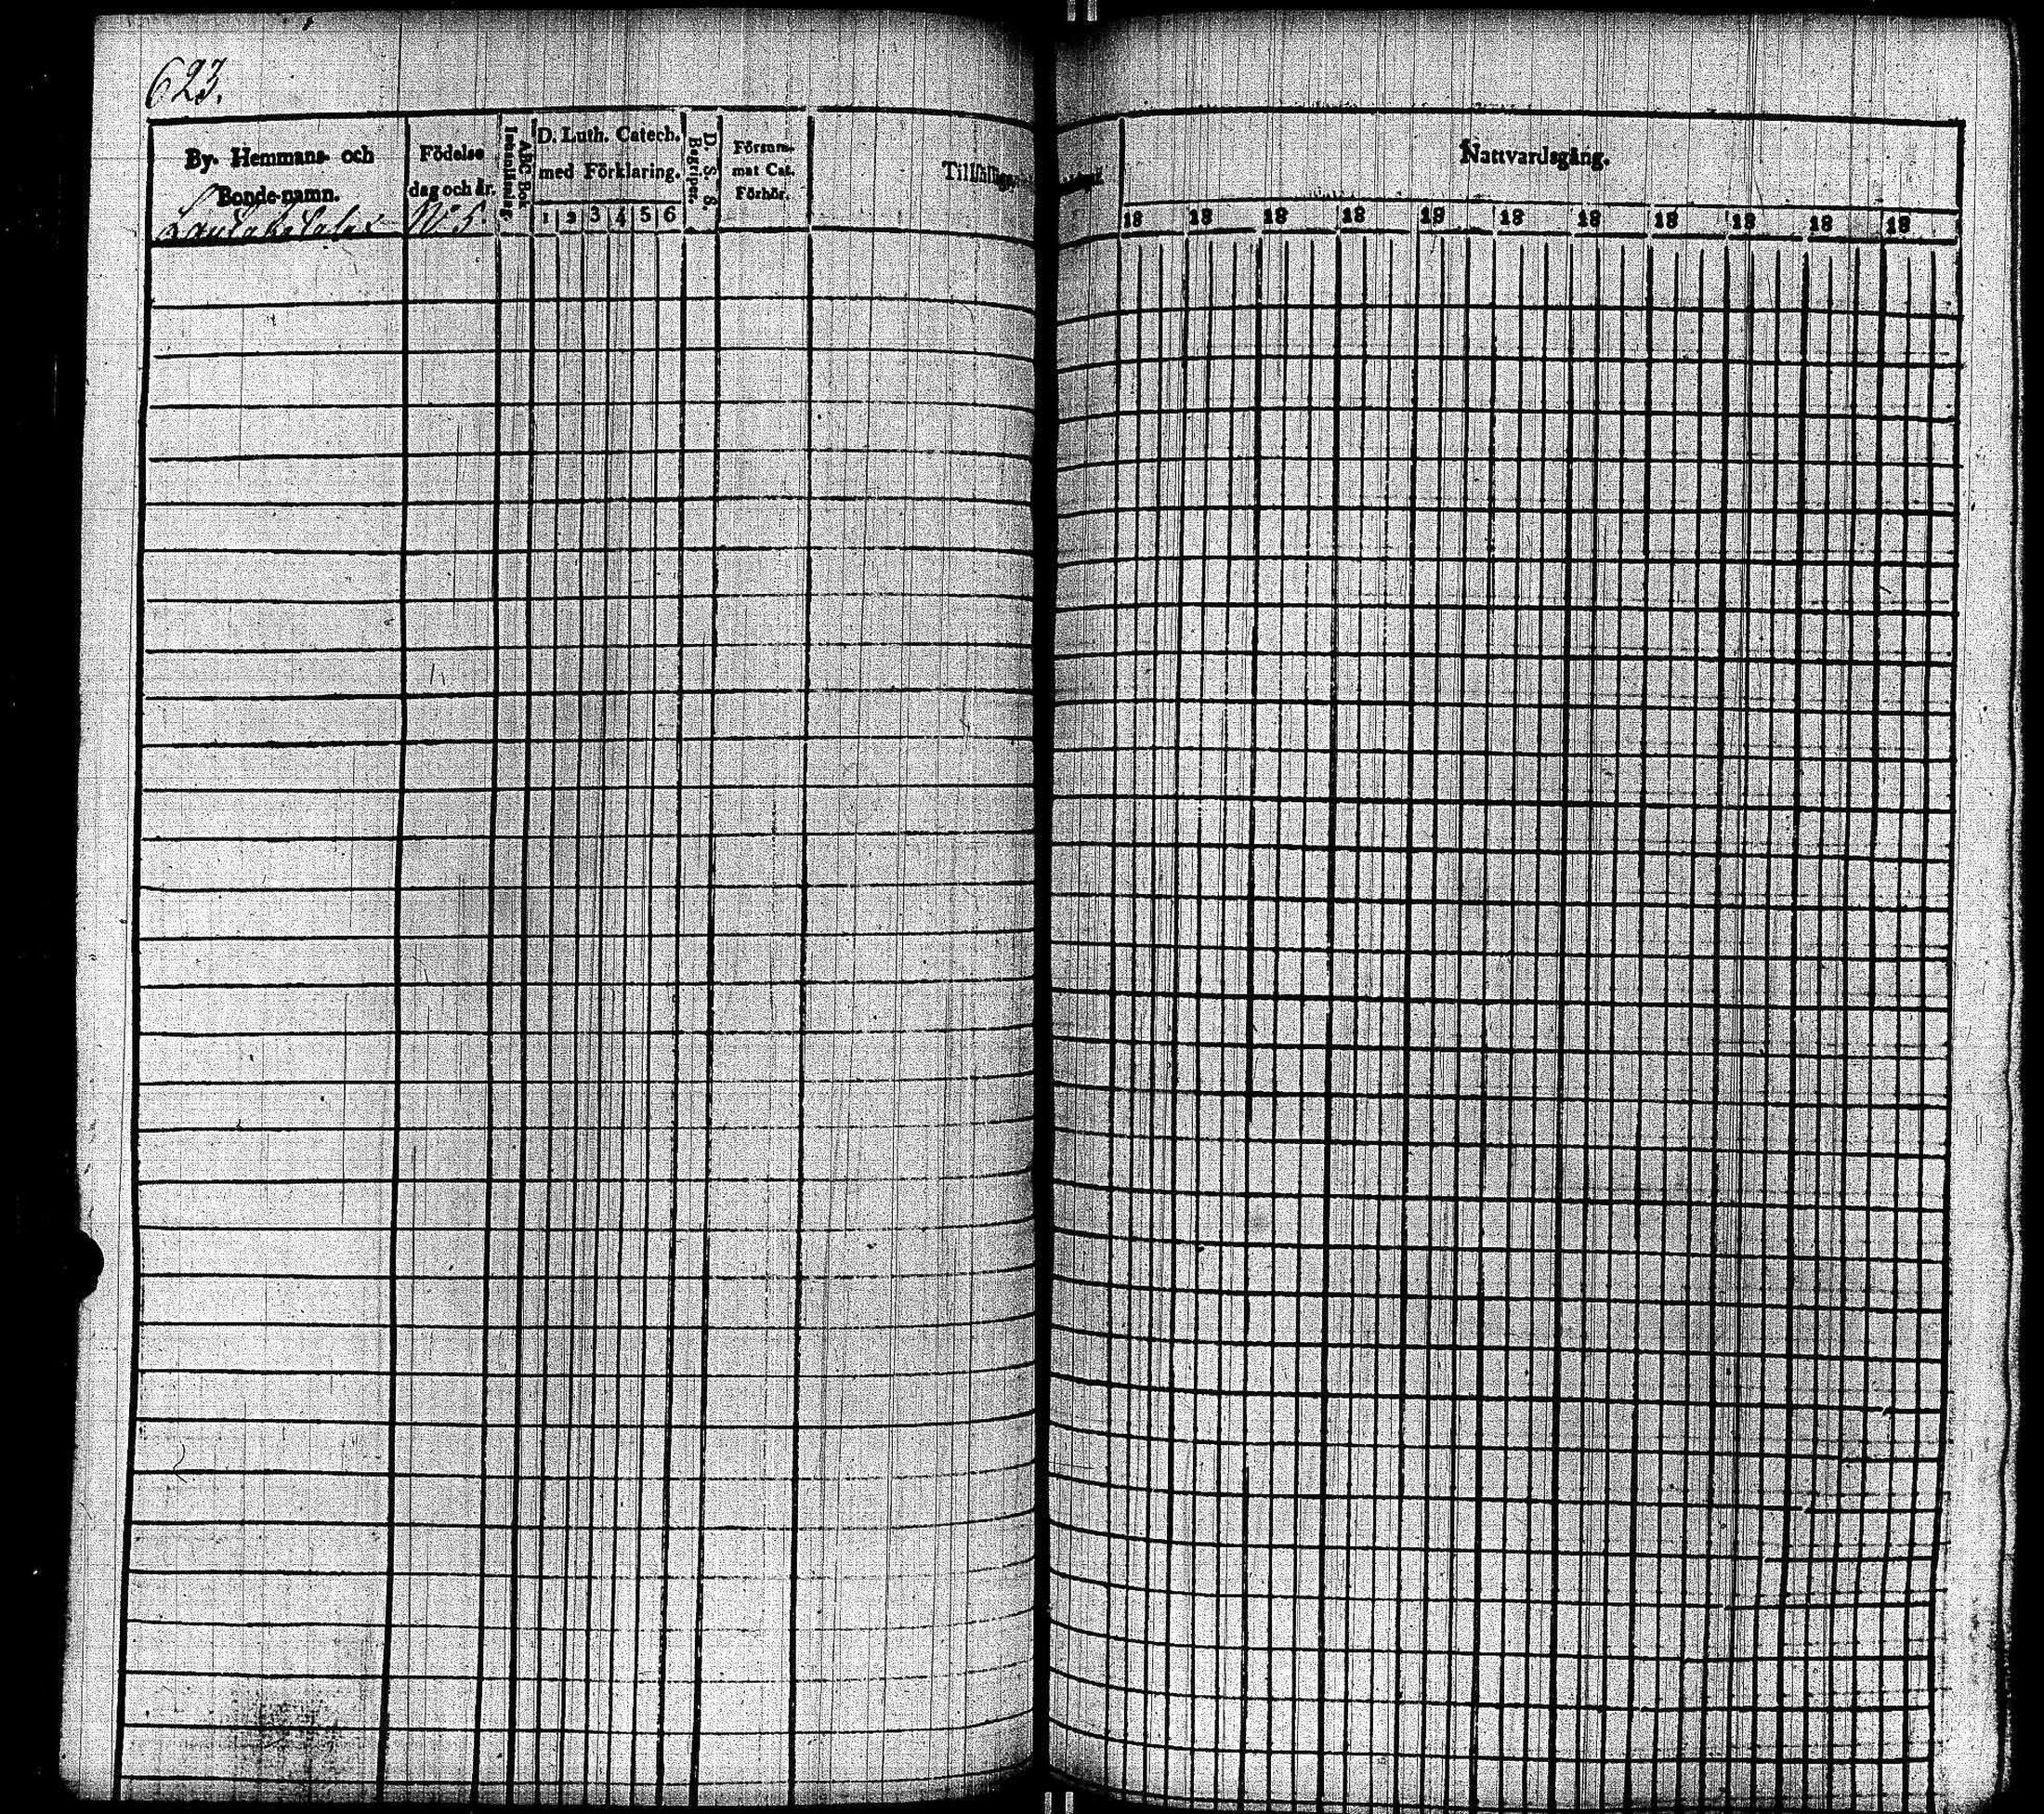 623.
By- Hemmans- och
Bonde-namn.
Födelse
dag och år.
No 5.
ABC Bok
D. Luth. Catech.
med Förklaring.
1 2 3 4 5 6
D. S. S.
Begriper.
Försum-
mat Cat.
Förhör.
Nattvardsgång.
18 18 18 18 18 18 18 18 18 18 18